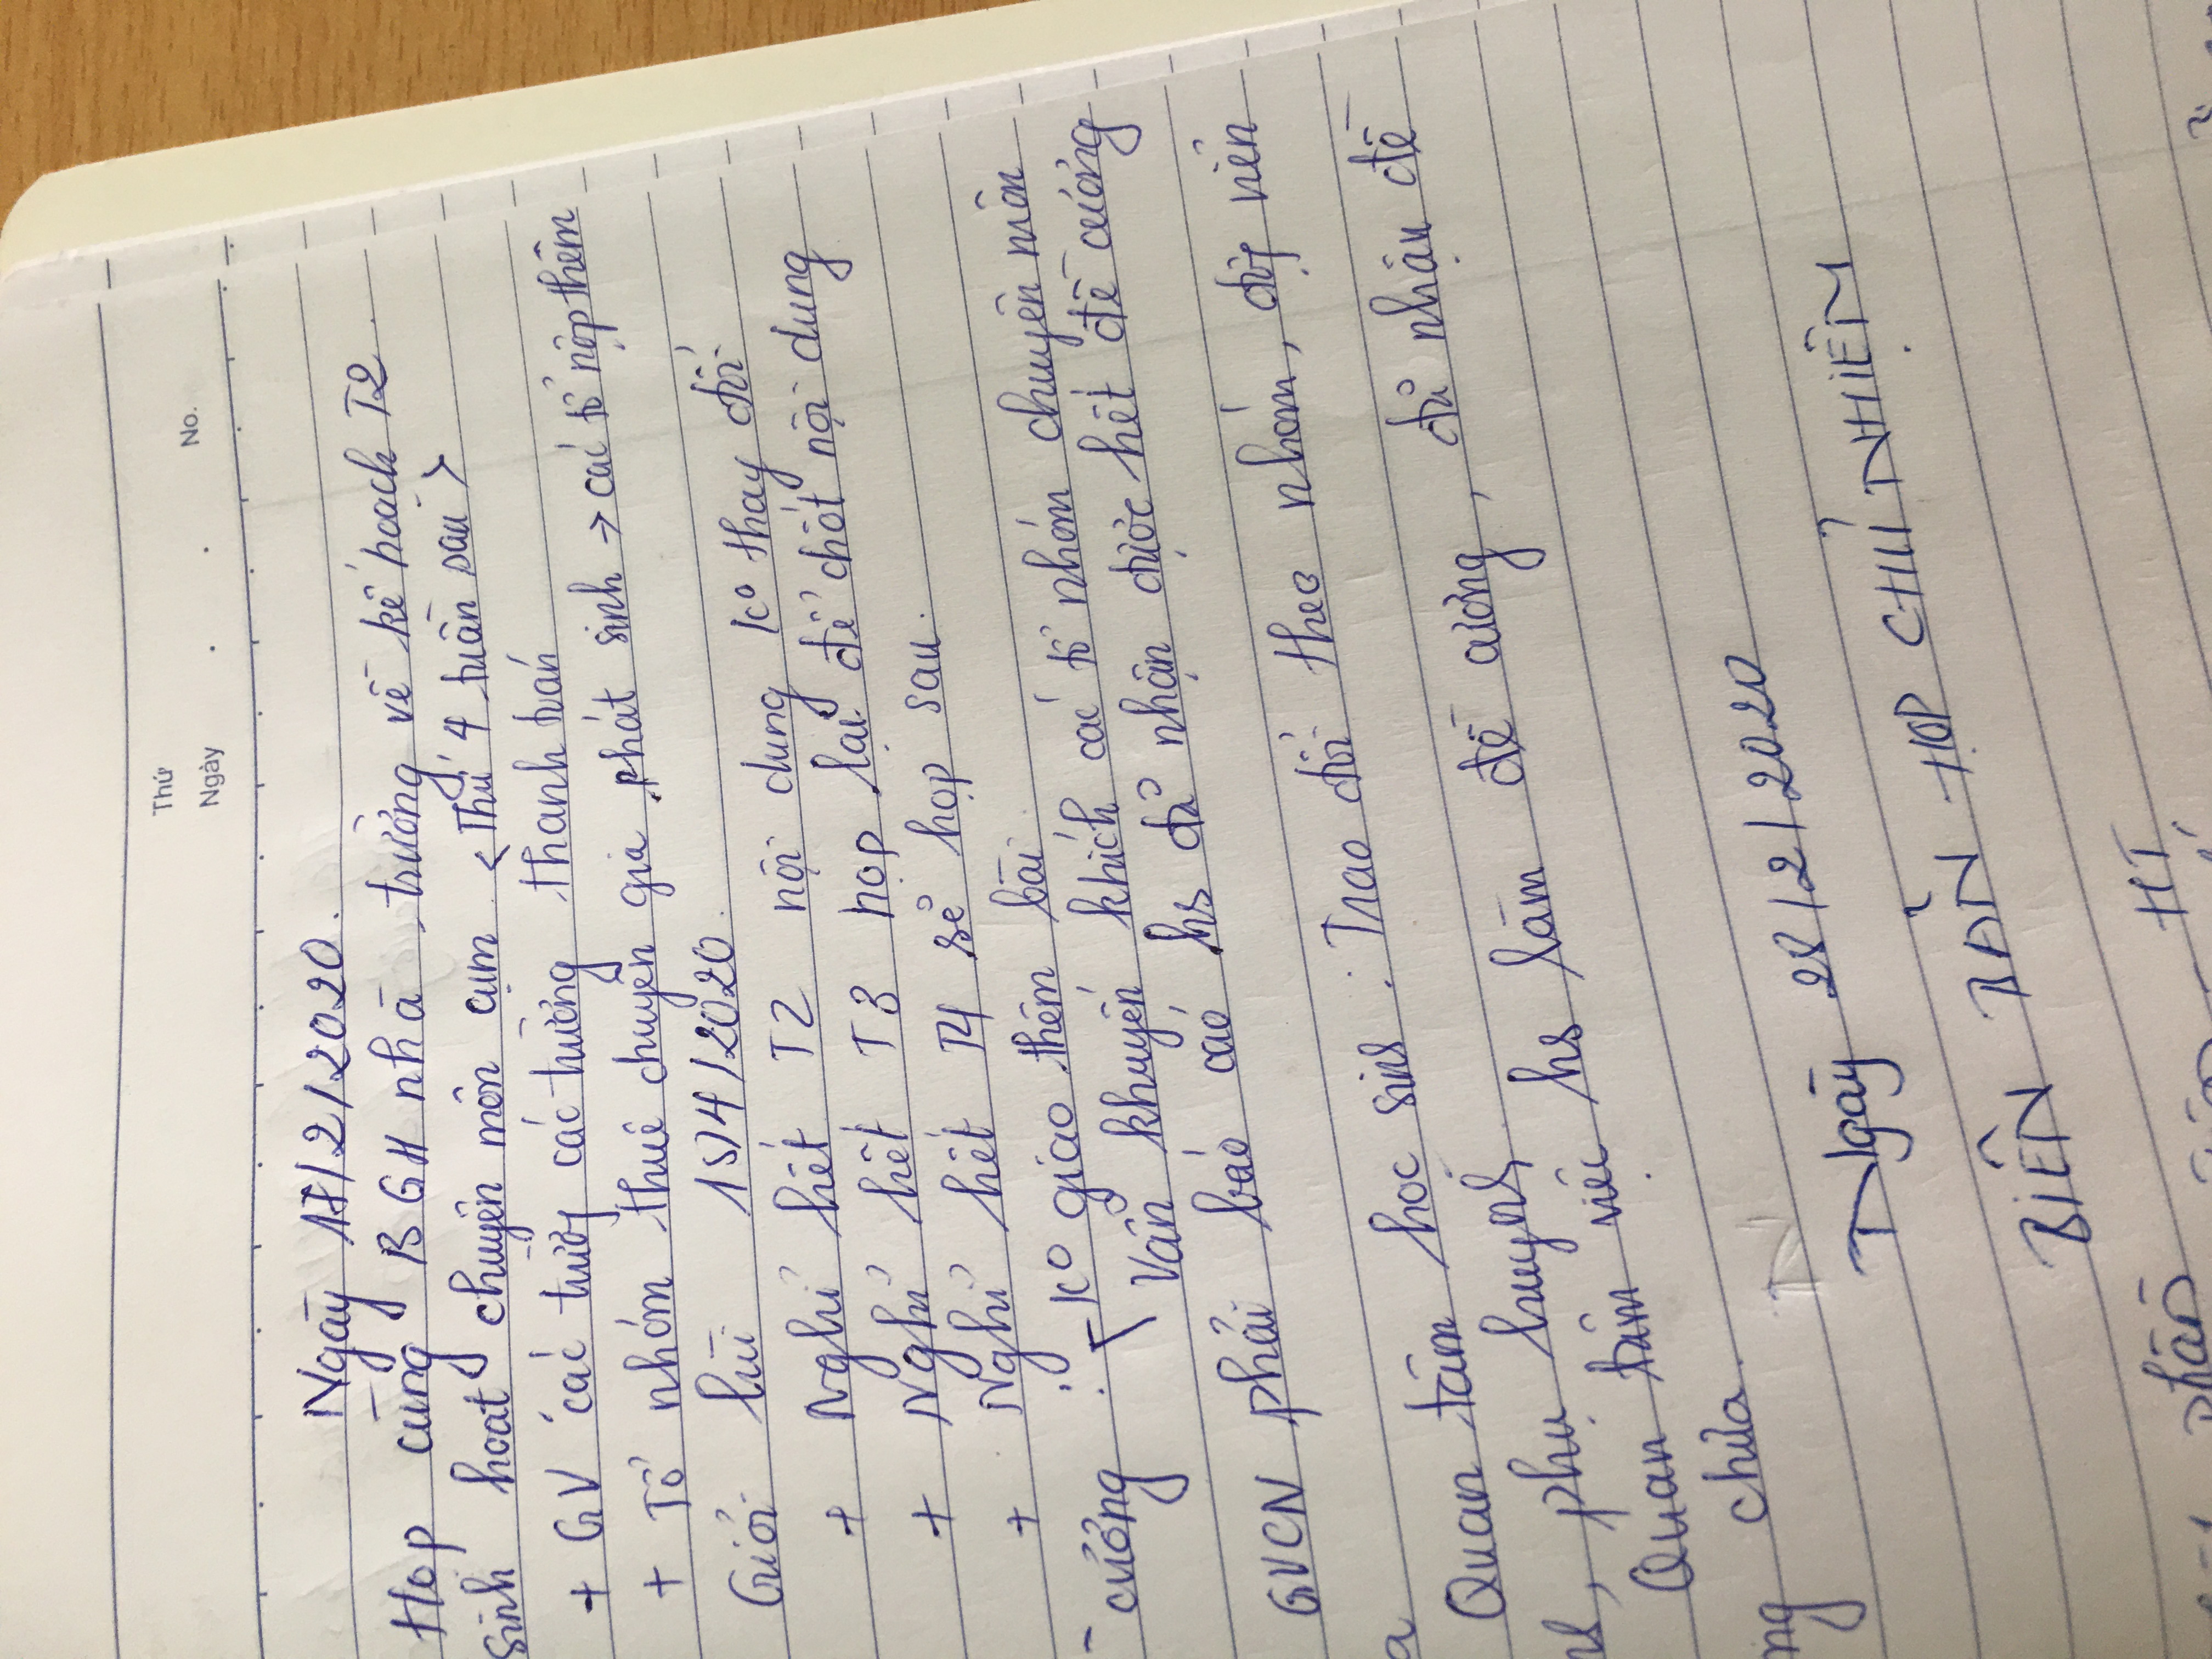 Thứ
Ngày
No.
Ngày 17/2/2020.
Họp cùng BGH nhà trường về kế hoạch T2
sinh hoạt chuyên môn cụm < Thứ 4 tuần sau >
+ GV các trường các trường thanh toán
+ Tổ nhóm thuê chuyên gia phát sinh → các tổ nộp thêm
Giỏi lùi 15/4/2020.
+ Nghỉ hết T2 nội dung ko thay đổi
+ Nghỉ hết T3 họp lại để chốt nội dung
+ Nghỉ hết T4 sẽ họp sau.
ko giao thêm bài
cương Vẫn khuyến khích các tổ nhóm chuyên môn
GVCN phải báo cáo hs đã nhận được hết đề cương
a
Quan tâm học sinh: Trao đổi theo nhóm, động viên
nh, phụ huynh
Quan tâm việc hs làm đề cương, đã nhận đề
ng chưa.
Ngày 28/2/2020
BIÊN BẢN HỌP CHỦ NHIỆM
phần HT